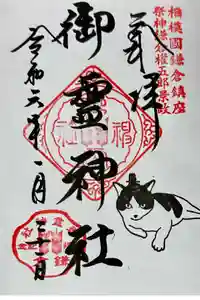 相模國鎌倉鎮座
祭神鎌倉權五郎景政
奉拝
御靈神社
令和六年一月
三十一日